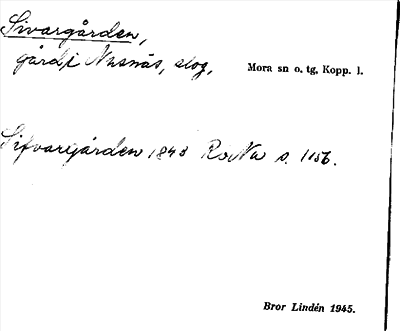 Sivargården,
gård i Nusnäs, slog,
Mora sn o. tg, Kopp. l.
Sifvargården 1843 RoNa s. 1156.
Bror Lindén 1945.